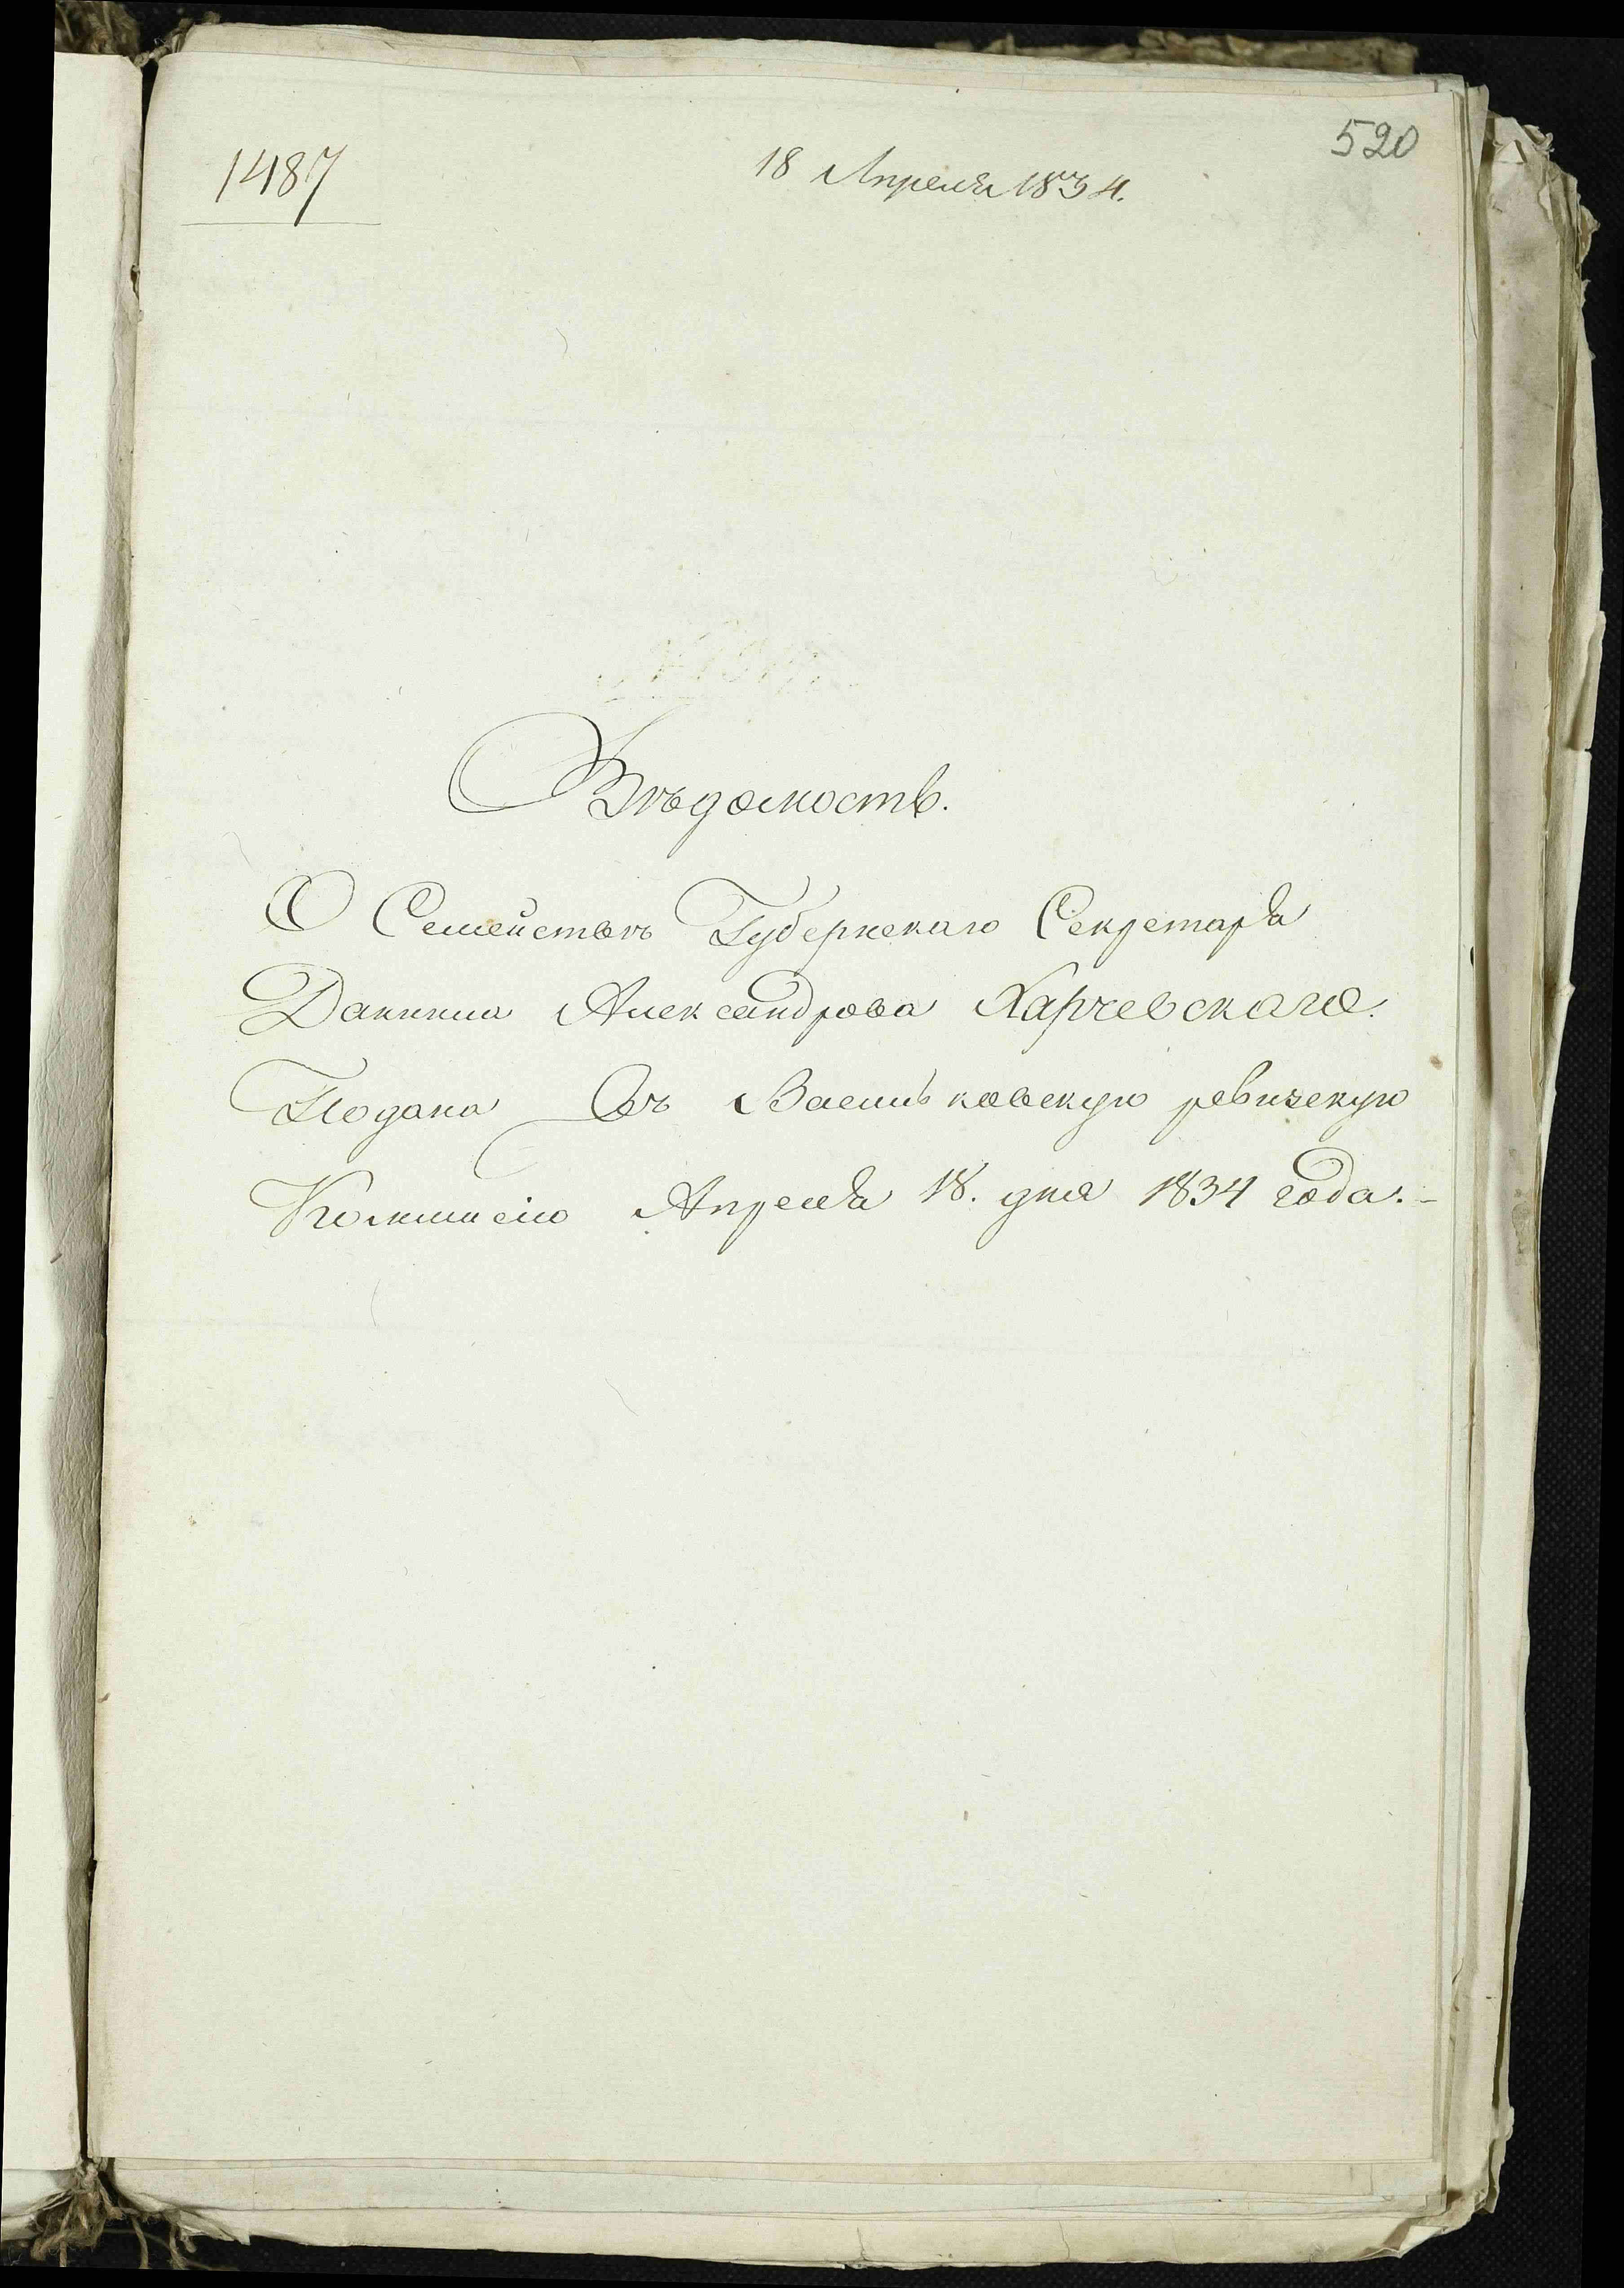 520
1487
18 Апреля 1834.
Вѣдомость.
О Семействѣ Губернскаго Секретаря
Данила Александрова Харчевскаго.
Подана Въ Васильковскую ревизскую
Коммисію Апреля 18. дня 1834 года.-